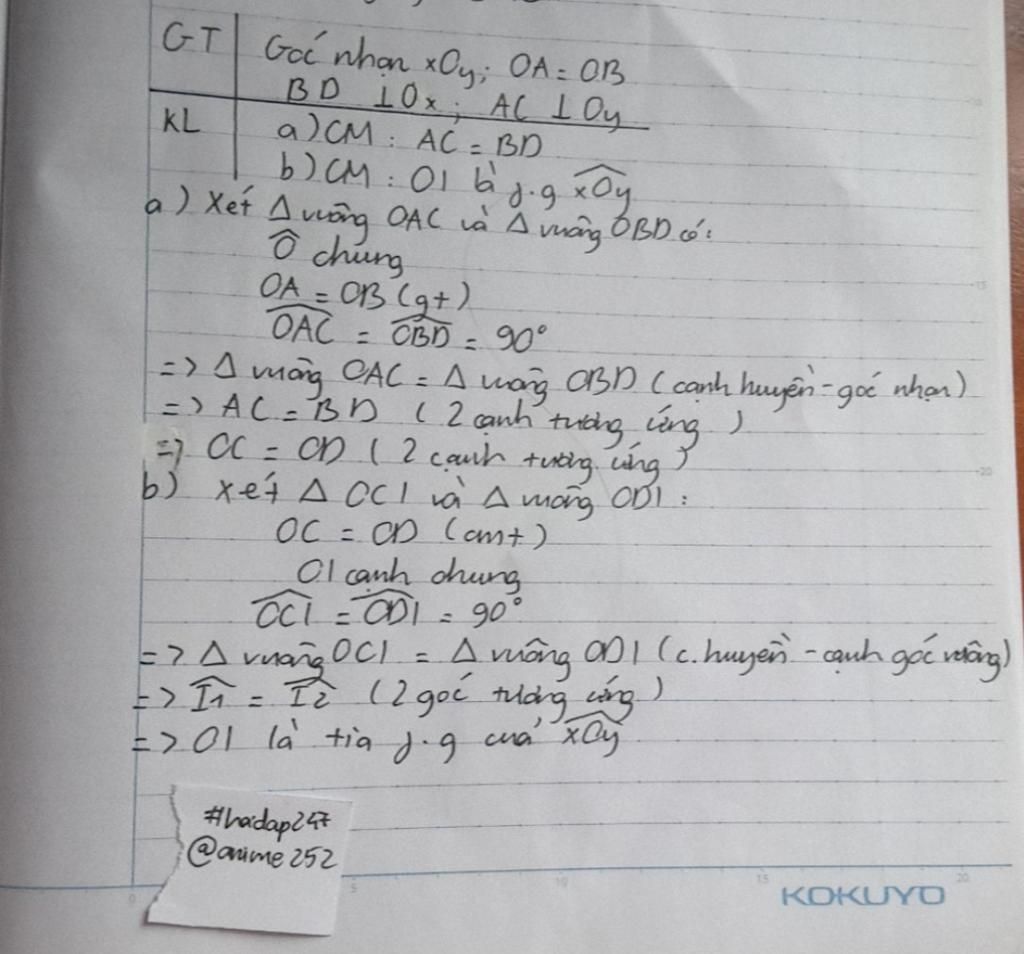 GT Góc nhọn xOy; OA = OB
BD ⊥ Ox; AC ⊥ Oy
KL a) CM: AC = BD
b) CM: OI là j.g xOy
a) Xét Δ vuông OAC và Δ vuông OBD có:
Ô chung
OA = OB (gt)
OAC = OBD = 90°
=> Δ vuông OAC = Δ vuông OBD (cạnh huyền - góc nhọn)
=> AC = BD (2 cạnh tương ứng)
=> OC = OD (2 cạnh tương ứng)
b) Xét Δ OCI và Δ vuông ODI:
OC = OD (cmt)
OI cạnh chung
OCI = ODI = 90°
=> Δ vuông OCI = Δ vuông ODI (c.huyền - cạnh góc vuông)
=> I1 = I2 (2 góc tương ứng)
=> OI là tia j.g của xOy
#hoidap247
@anime252
0 5 10 15 20
KOKUYO